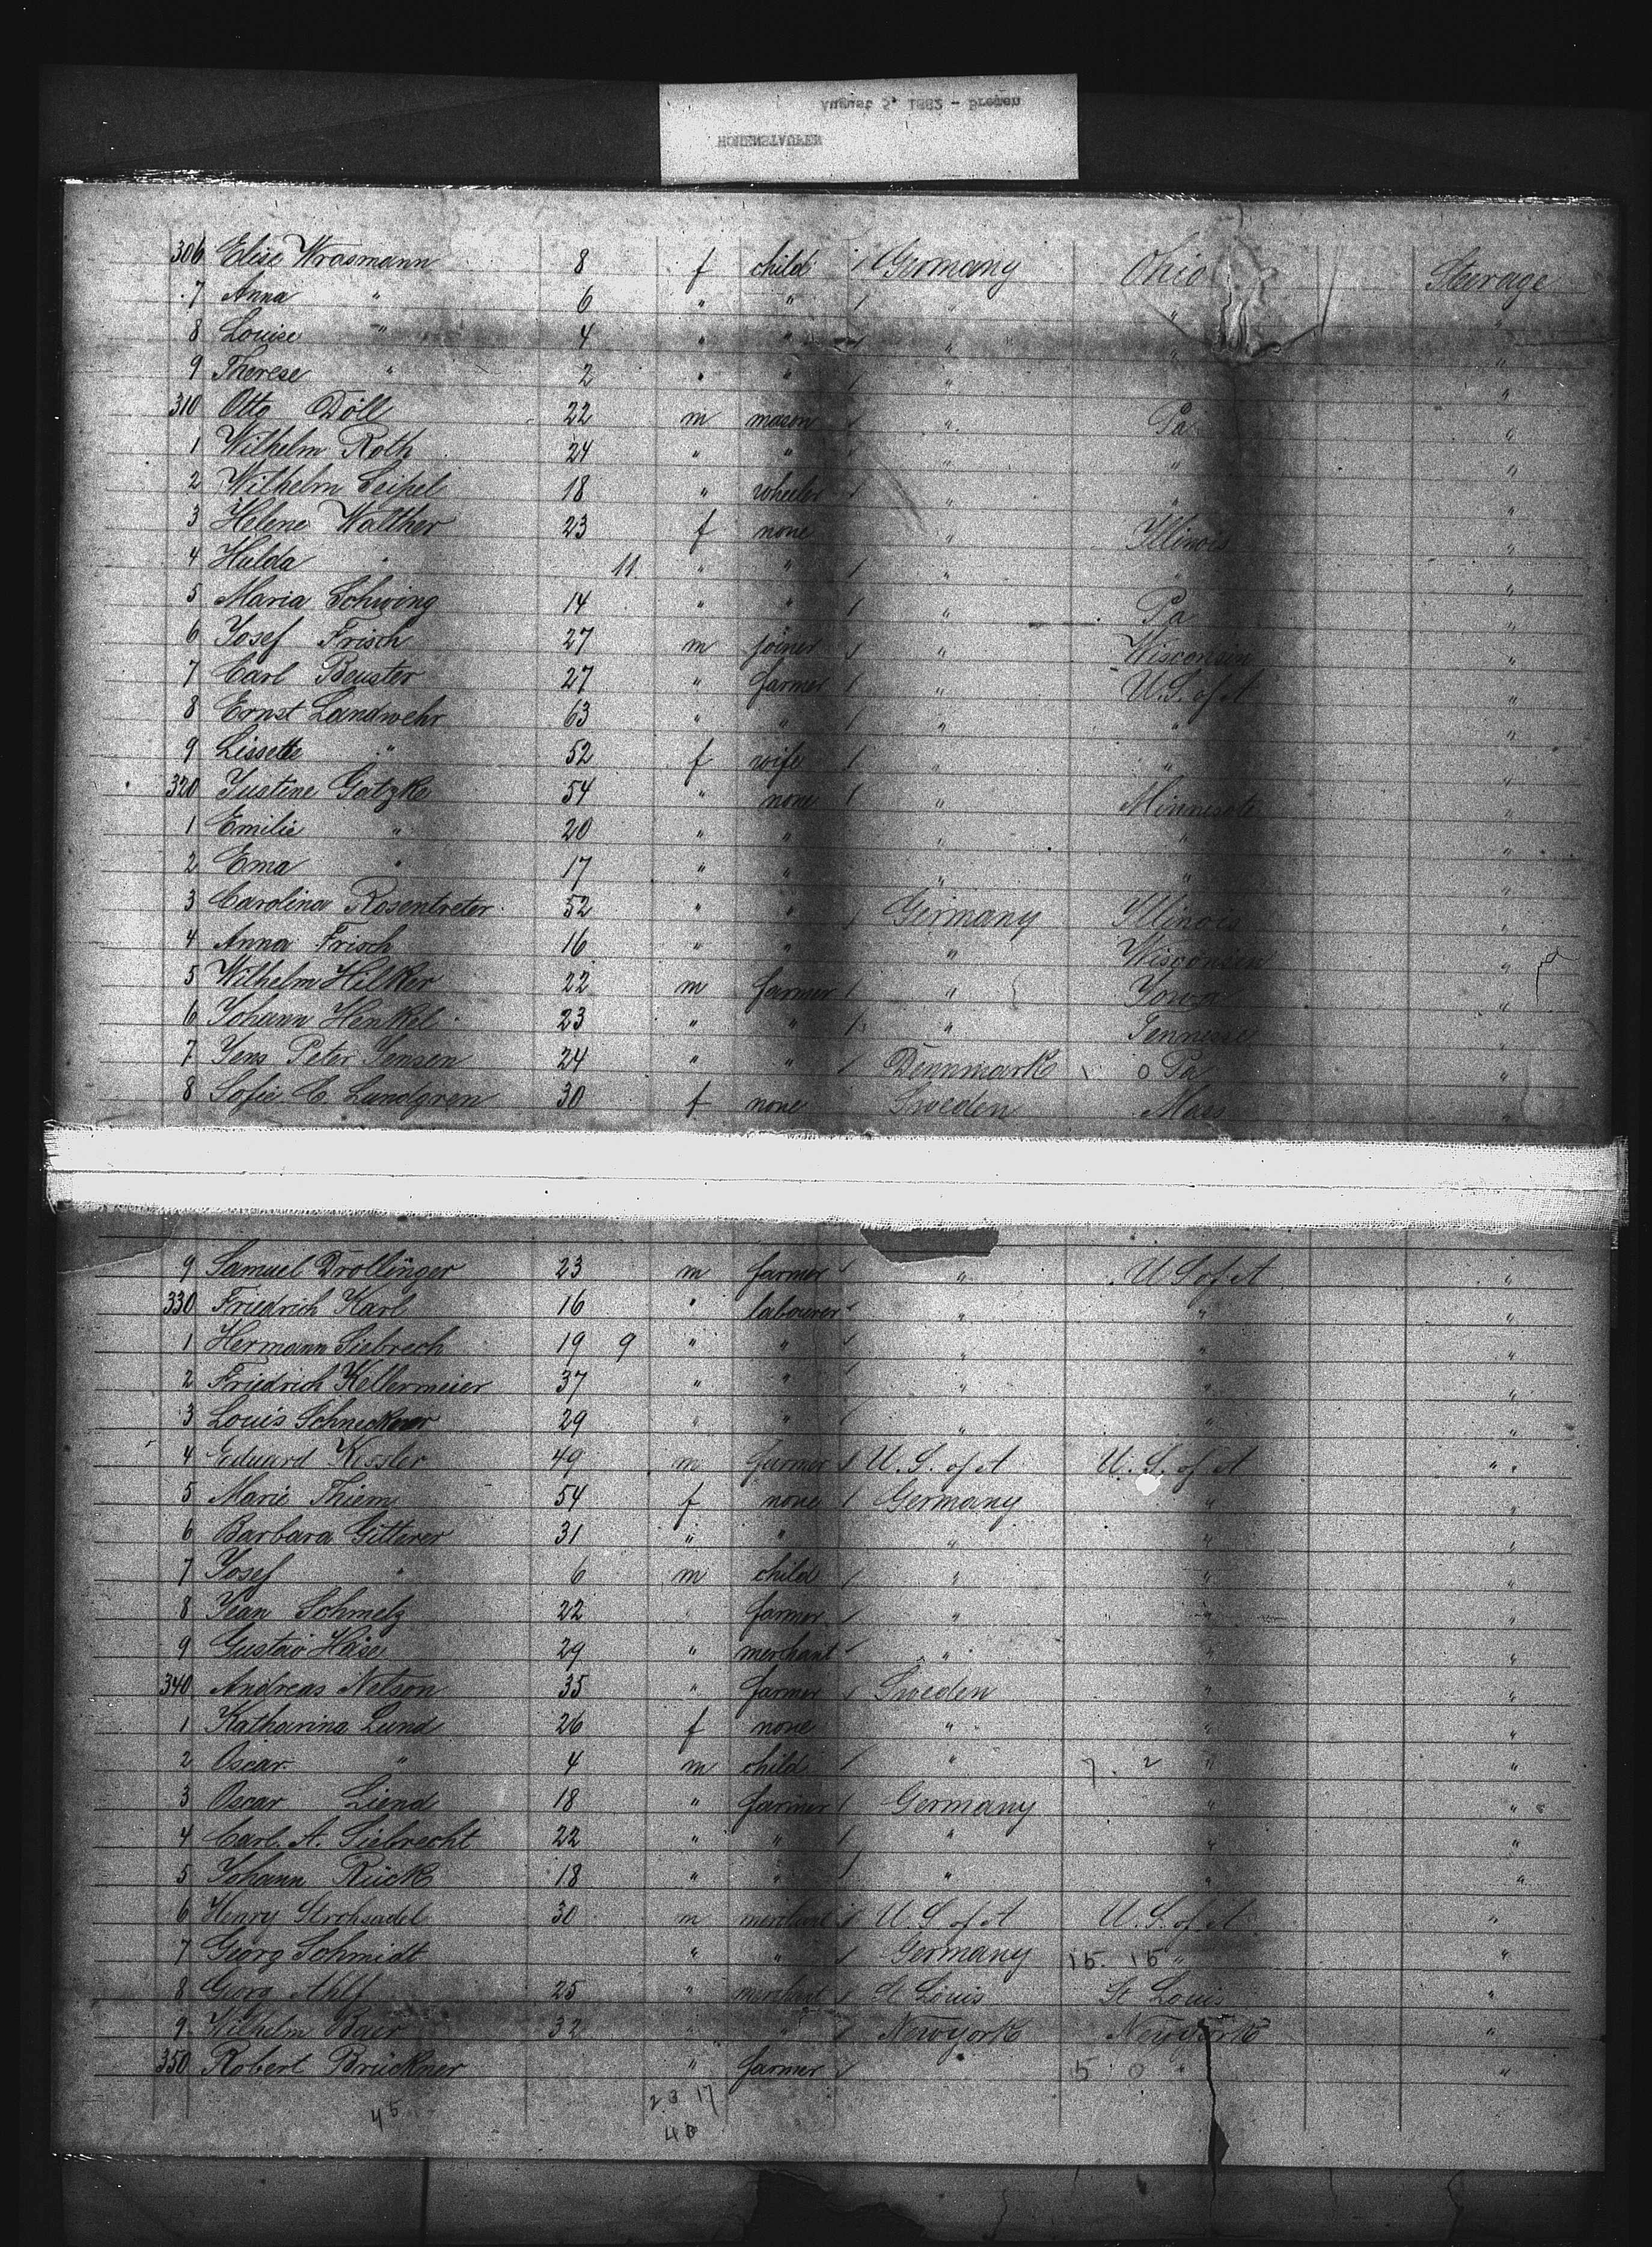 August 5, 1882 - Bremen
HOHENSTAUFEN
306 Elise Wrasmann 8 f child / Germany Ohio Steerage
7 Anna " 6 " " / " " "
8 Louise " 4 " " / " " "
9 Therese " 2 " " / " "
310 Otto Döll 22 m mason / " Pa "
1 Wilhelm Roth 24 " " / " " "
2 Wilhelm Seipel 18 " wheeler / " " "
3 Helene Walther 23 f none " Illinois "
4 Hulda " 11 " " / " " "
5 Maria Schwing 14 " " / " Pa "
6 Josef Frisch 27 m joiner / " Wisconsin "
7 Carl Beuster 27 " farmer / " U.S. of A "
8 Ernst Landwehr 63 " " / " " "
9 Lissette " 52 f wife / " " "
320 Justine Gatzke 54 " none / " Minnesota "
1 Emilie " 20 " " " " "
2 Ema " 17 " " " " "
3 Carolina Rosentreter 52 " " / Germany Illinois "
4 Anna Frisch 16 " " " Wisconsin "
5 Wilhelm Hilker 22 m farmer / " Iowa "
6 Johann Henkel 23 " " / " Tennesse "
7 Jens Peter Jensen 24 " " / Dennmark o Pa "
8 Sofie C. Lundgren 30 f none Sweden Mass "
9 Samuel Drollinger 23 m farmer / " U S of A "
330 Friedrich Karl 16 " labourer / " " "
1 Hermann Siebrech 19 9 " " / " " "
2 Friedrich Kellermeier 37 " " / " " "
3 Louis 29 " " / " " "
4 Eduard Kessler 49 m farmer / U.S. of A U.S. of A "
5 Marie Thierry 54 f none / Germany " "
6 Barbara Gitterer 31 " " " " "
7 Josef " 6 m child / " " "
8 Jean Schmelz 22 " farmer / " " "
9 Gustav Häse 29 " merchant / " " "
340 Andreas Nelson 35 " farmer / Sweden " "
1 Katharina Lund 26 f none " " "
2 Oscar " 4 m child / " 7. 2 " "
3 Oscar Liend 18 " farmer / Germany " "
4 Carl. A. Siebrecht 22 " " / " " "
5 Johann Rück 18 " " / " " "
6 Henry Strohsadel 30 m merchant / U.S of A U.S. of A "
7 Georg Schmidt " " / Germany 15. 15 " "
8 Georg Ahlf 25 " merchant / St Louis St Louis "
9 Wilhelm Baer 32 " " / Newyork Newyork "
350 Robert Brückner " farmer / 5 0 " "
45 23 17
40